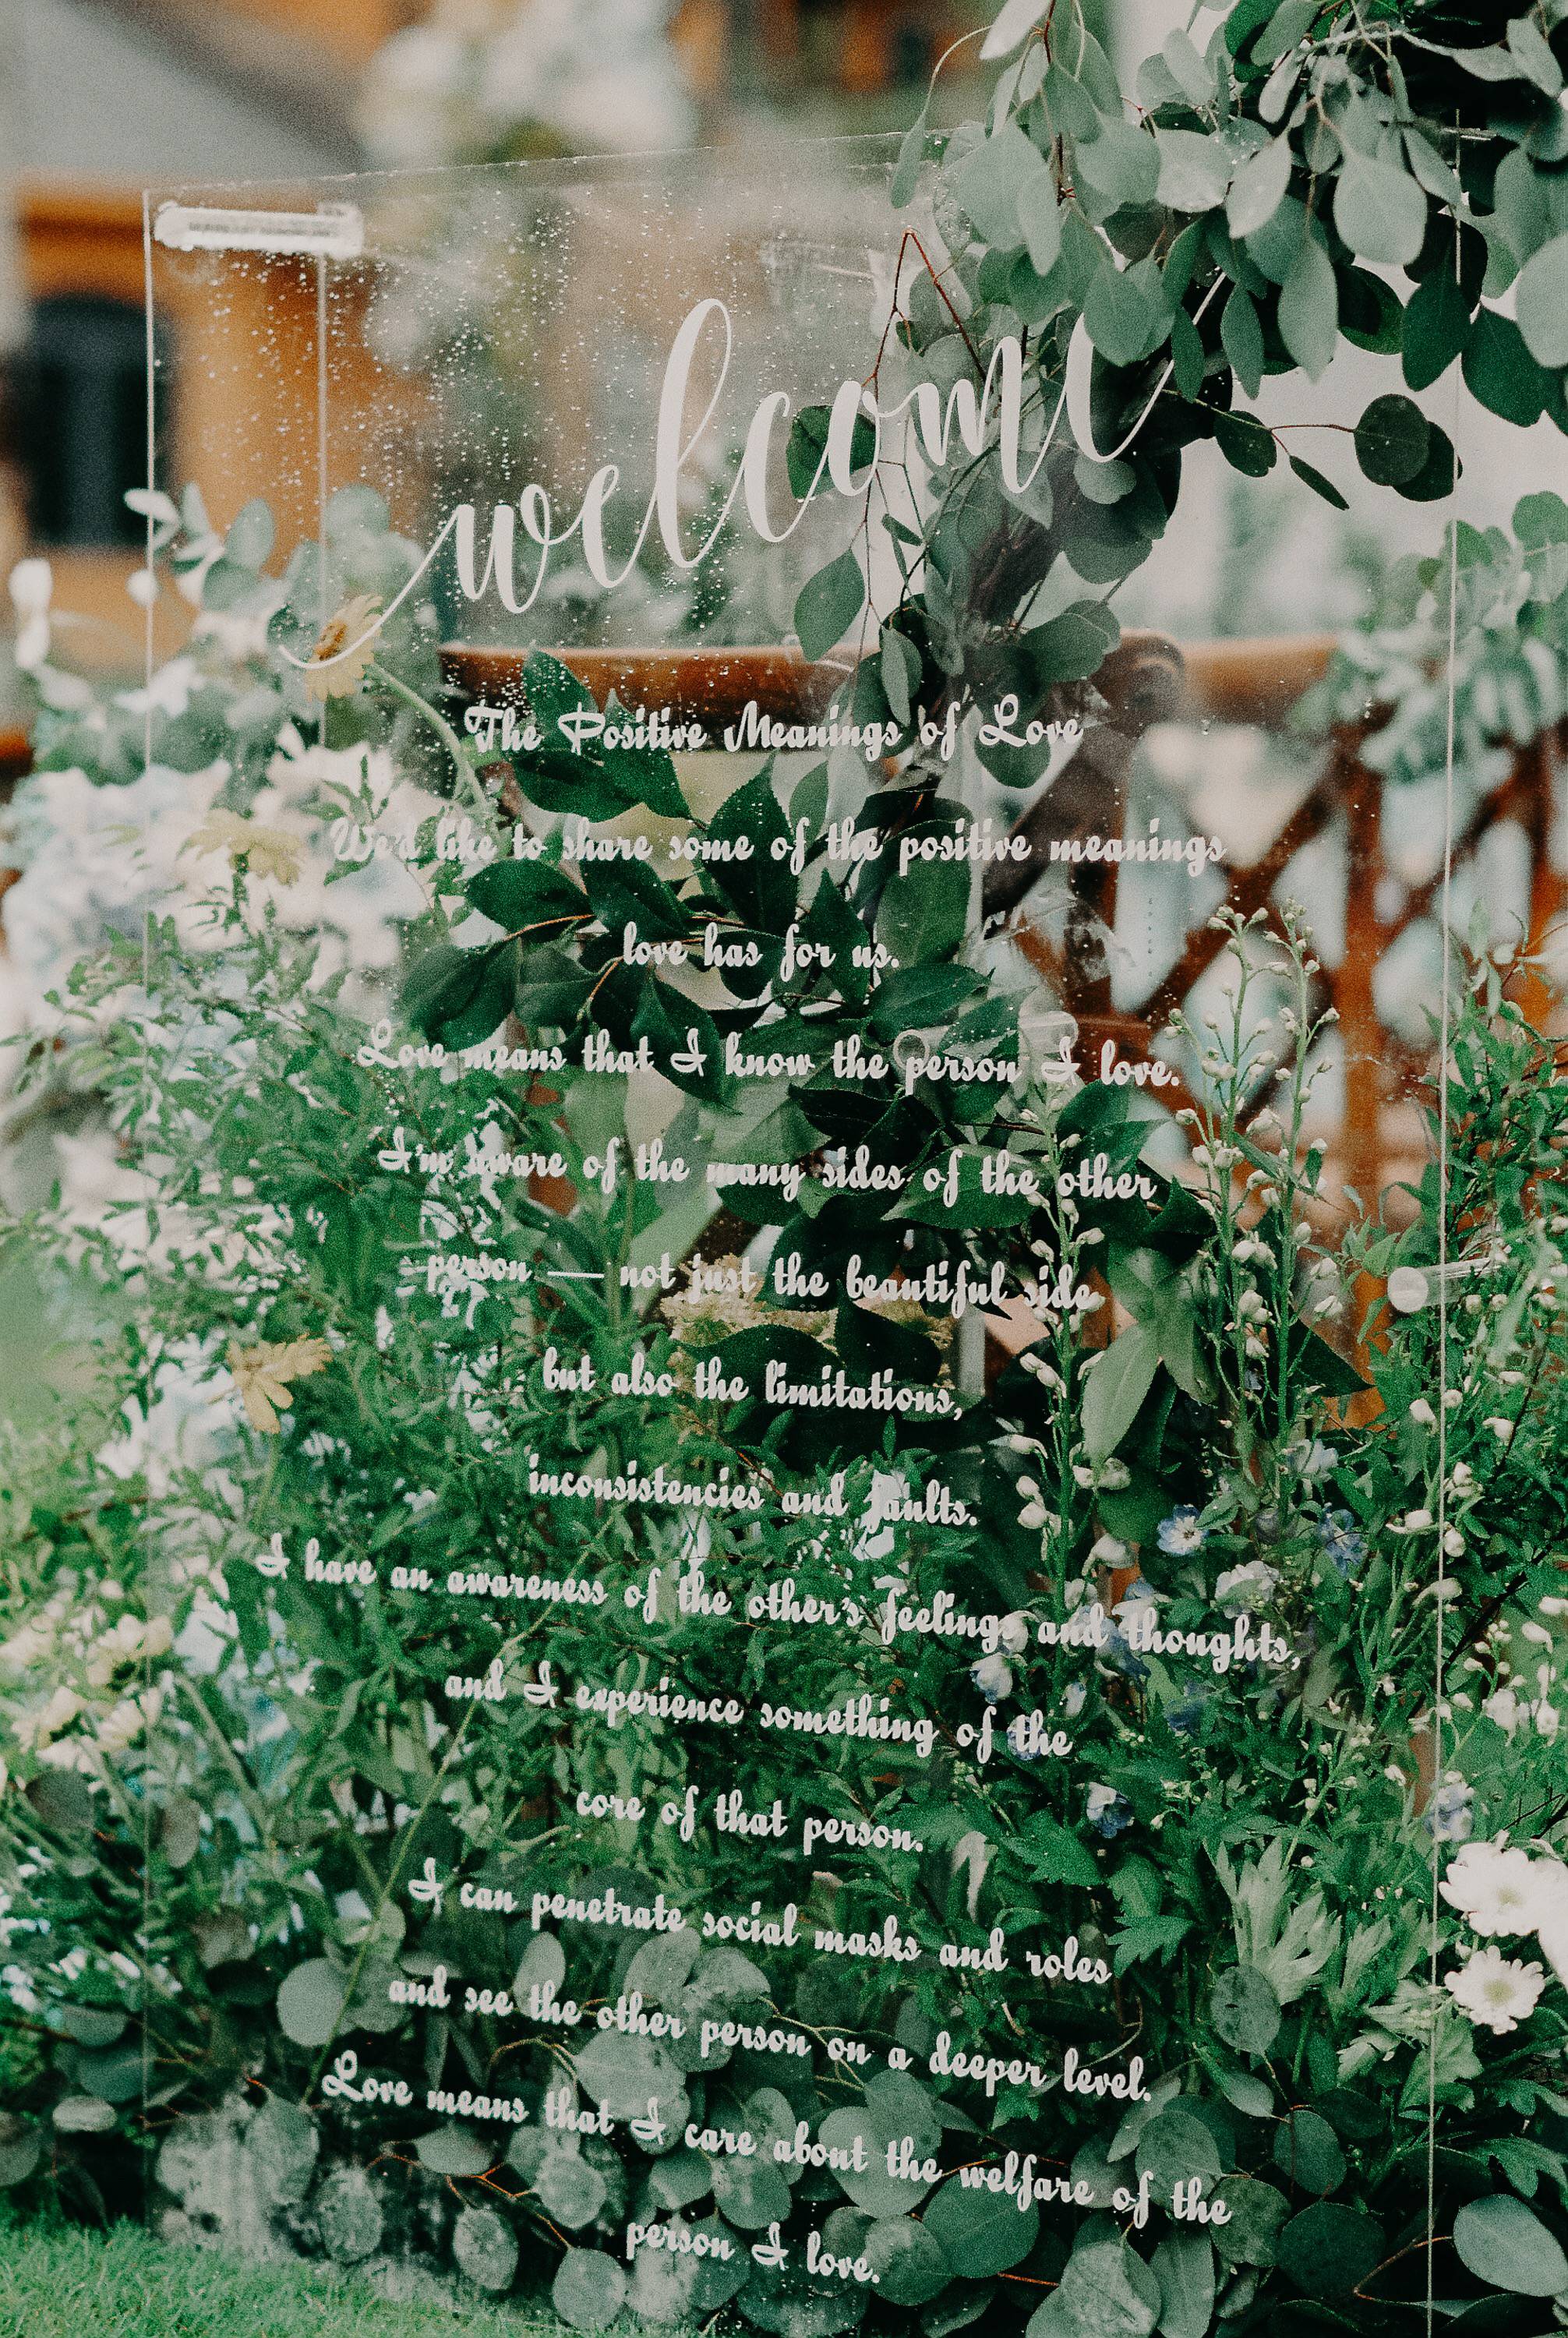 welcome
The Positive Meanings of Love
We'd like to share some of the positive meanings
love has for us.
Love means that I know the person I love.
I'm aware of the many sides of the other
person — not just the beautiful side
but also the limitations,
inconsistencies and faults.
I have an awareness of the other's feelings and thoughts,
and I experience something of the
core of that person.
I can penetrate social masks and roles
and see the other person on a deeper level.
Love means that I care about the welfare of the
person I love.